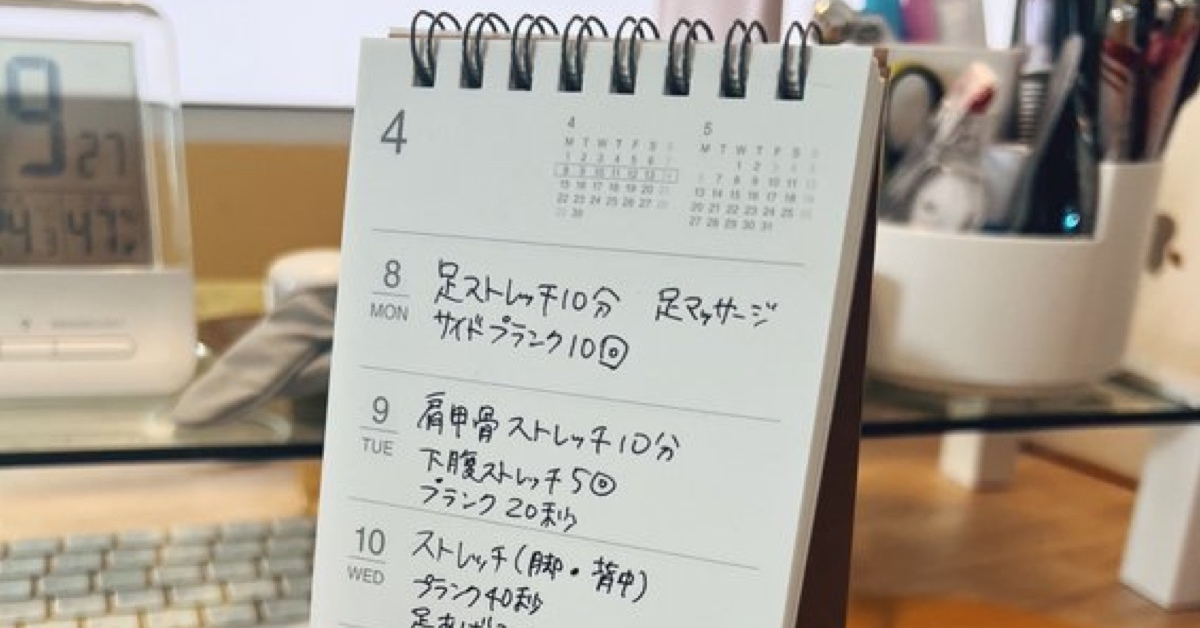 9 27
4
4
M T W T F S S
1 2 3 4 5 6 7
8 9 10 11 12 13 14
15 16 17 18 19 20 21
22 23 24 25 26 27 28
29 30
5
M T W T F S S
1 2 3 4 5
6 7 8 9 10 11 12
13 14 15 16 17 18 19
20 21 22 23 24 25 26
27 28 29 30 31
8
MON
足ストレッチ10分 足マッサージ
サイドプランク10回
9
TUE
肩甲骨ストレッチ10分
下腹ストレッチ5回
プランク20秒
10
WED
ストレッチ(脚・背中)
プランク40秒
足あげ